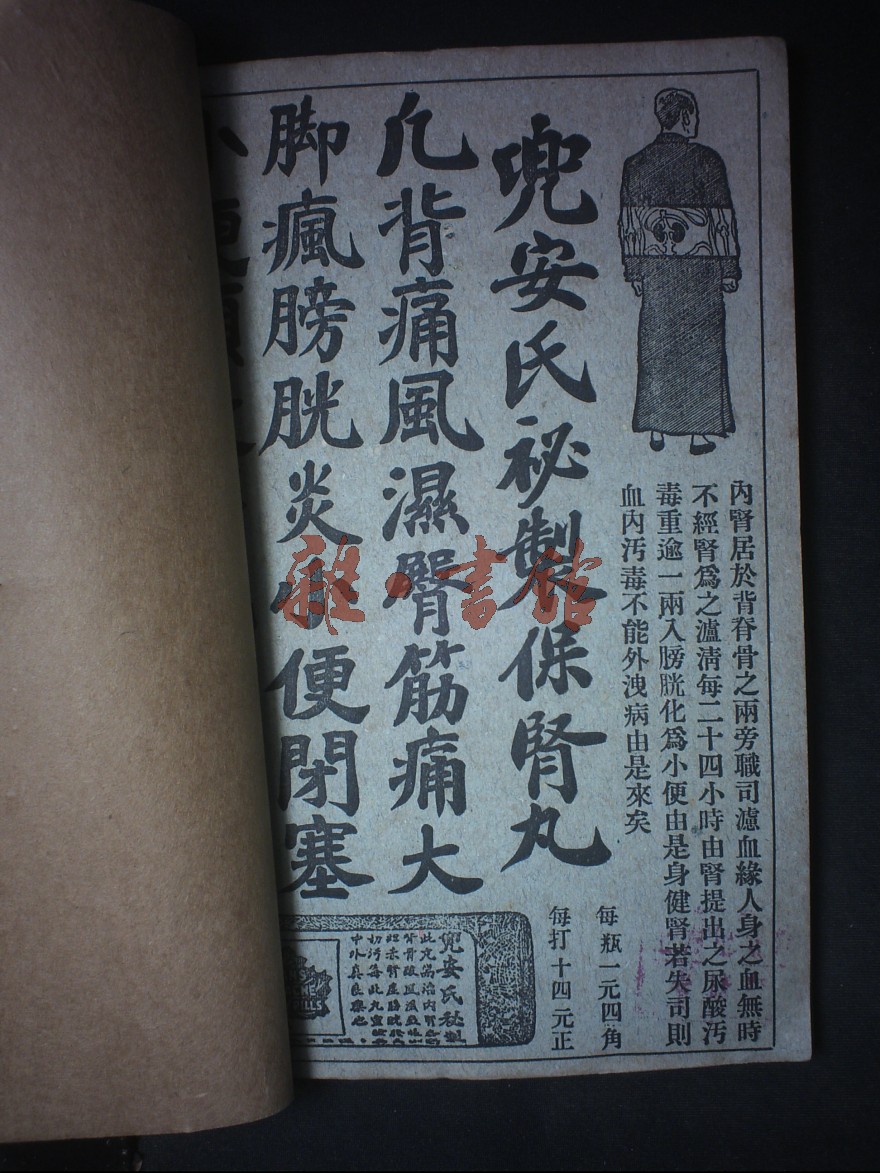 內腎居於背脊骨之兩旁職司濾血緣人身之血無時
不經腎爲之瀘清每二十四小時由腎提出之尿酸汚
毒重逾一兩入膀胱化爲小便由是身健腎若失司則
血內汚毒不能外洩病由是來矣
兜安氏祕製保腎丸
每瓶一元四角
每打十四元正
凡背痛風濕臀筋痛大
脚瘋膀胱炎小便閉塞
兜安氏秘製
雜·書館